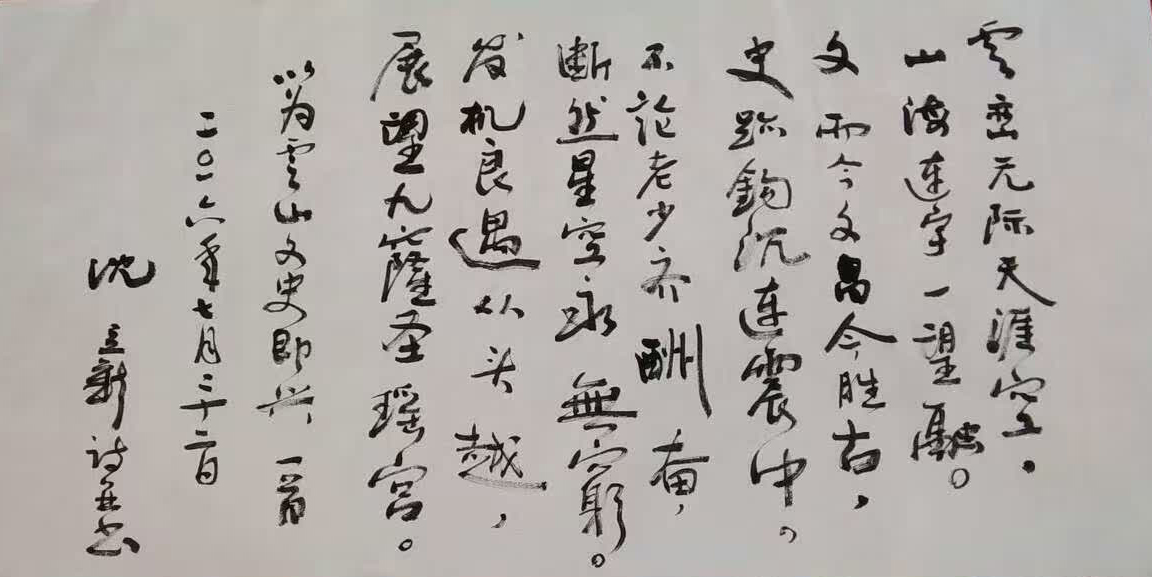 雲峦无际天涯空，
山海连宇一望融。
文而今文昌今胜古，
史跡鈎沉连震中。
不论老少齐酬奋，
断然星空永無穷。
发机良遇从头越，
展望九薩圣瑶宫。
以为雲山文史即兴一首
二〇一六年七月二十二日
沈立新诗并书